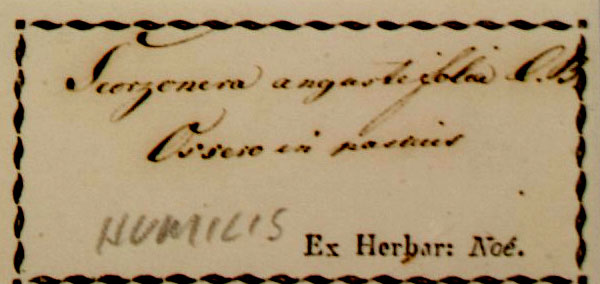 Scorzonera angustifolia C.B
Ossero in
HUMILIS
Ex Herbar: Noé.